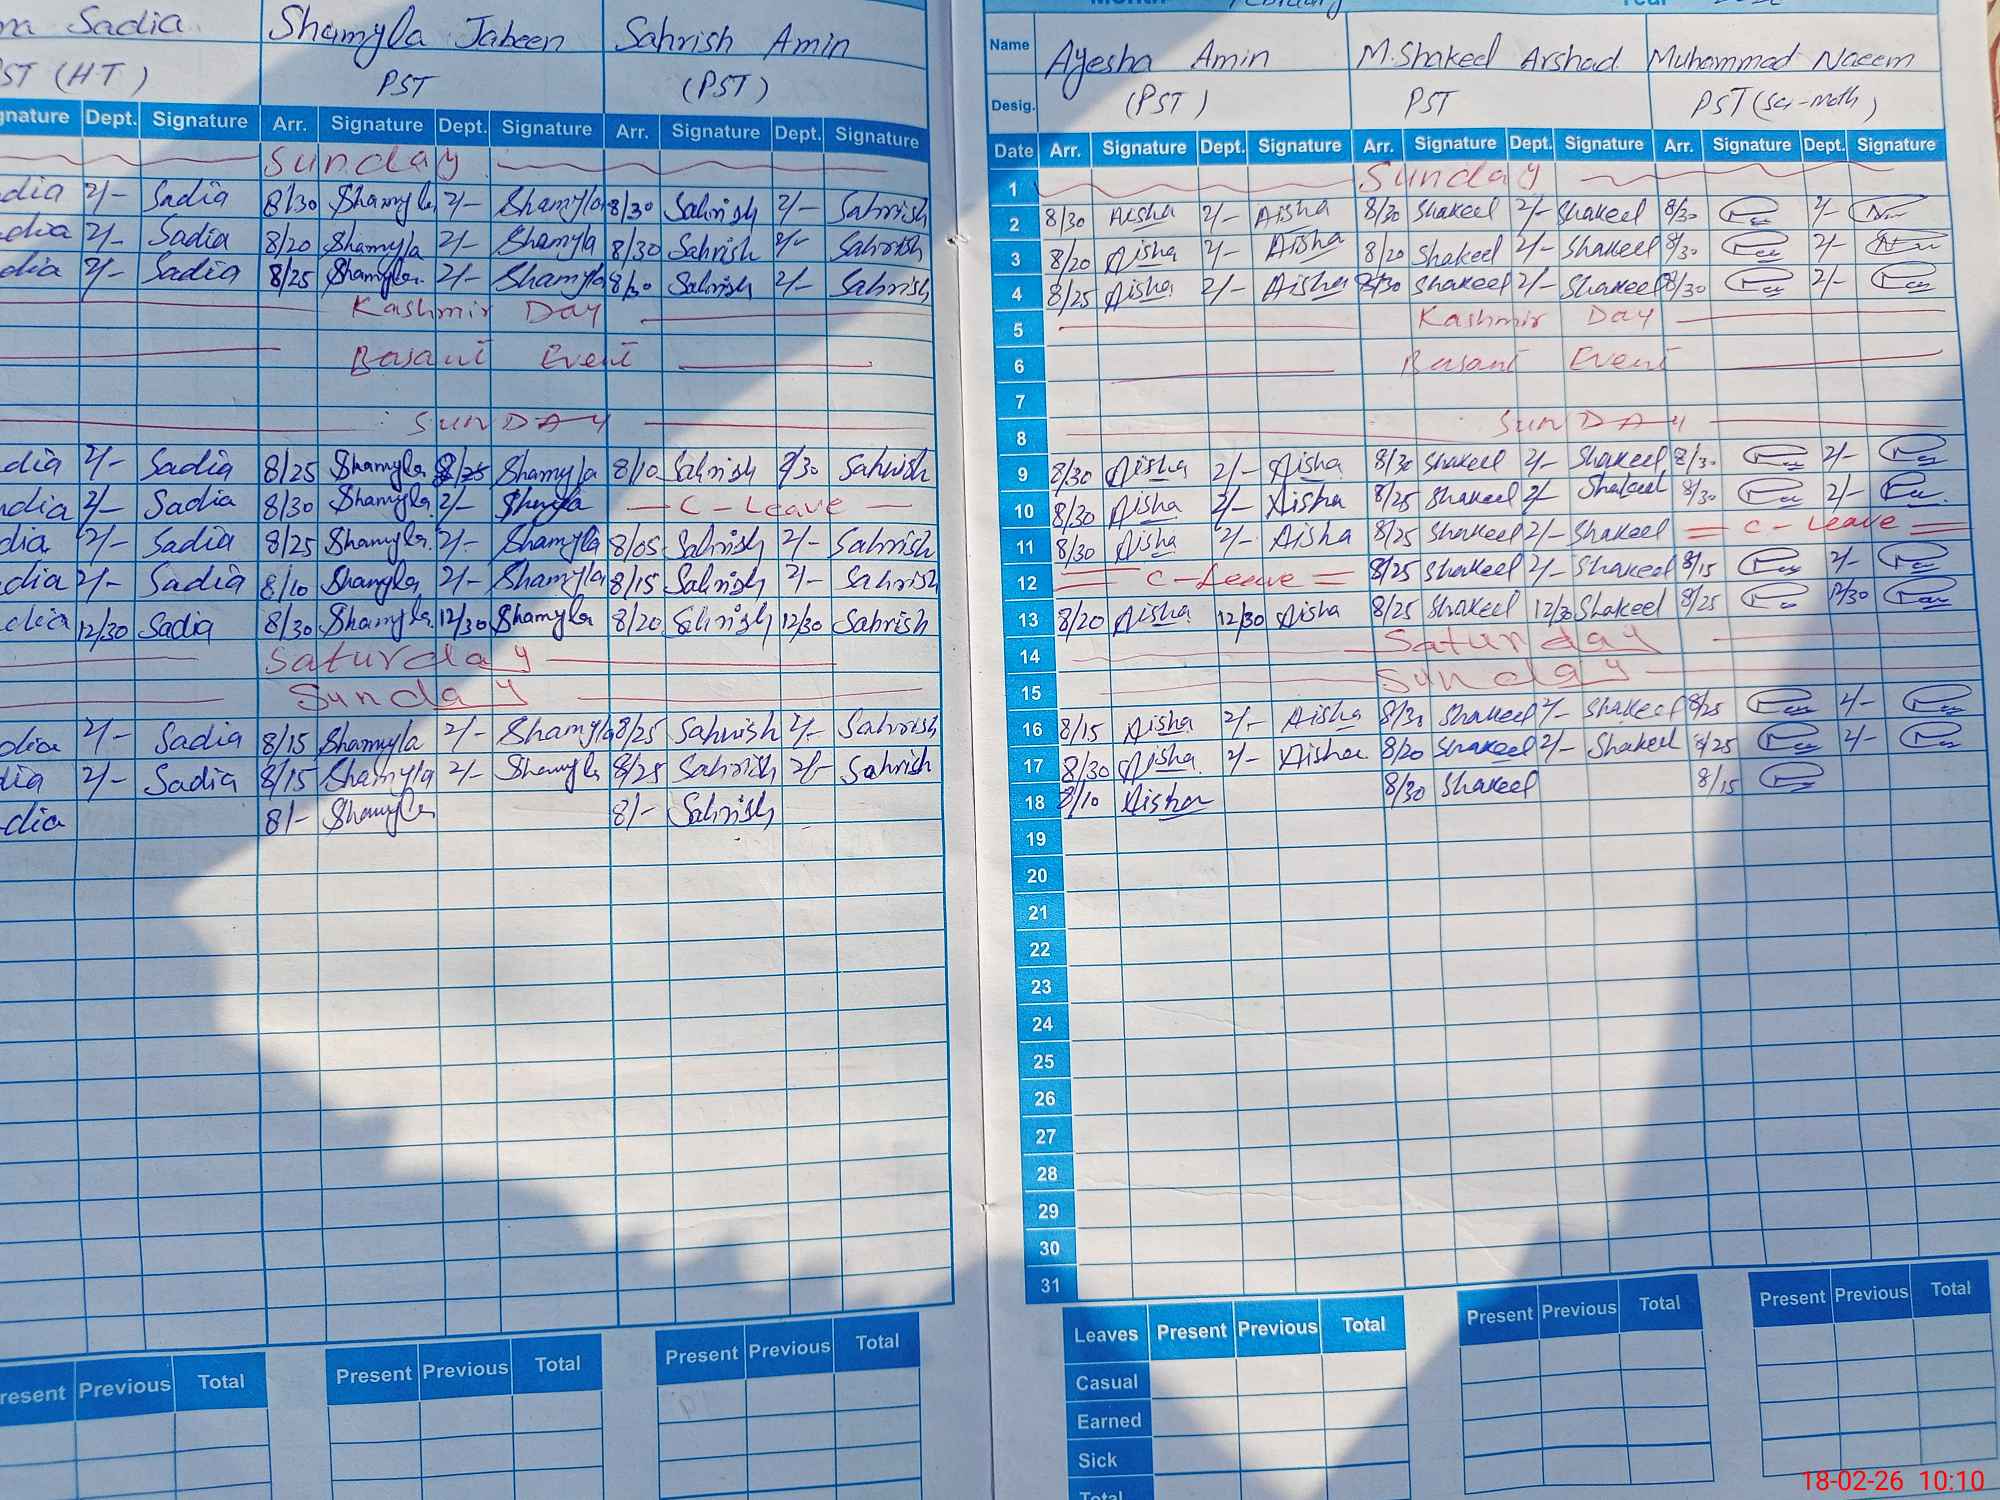 Sadia Shamyla Jabeen Sahrish Amin
PST (HT) PST (PST)
Signature Dept. Signature Arr. Signature Dept. Signature Arr. Signature Dept. Signature
Sunday
dia 2/- Sadia 8/30 Shamyla 2/- Shamyla 8/30 Sahrish 2/- Sahrish
dia 2/- Sadia 8/20 Shamyla 2/- Shamyla 8/30 Sahrish 2/- Sahrish
dia 2/- Sadia 8/25 Shamyla 2/- Shamyla 8/30 Sahrish 2/- Sahrish
Kashmir Day
Basant Event
SUNDAY
dia 2/- Sadia 8/25 Shamyla Shamyla 8/10 Sahrish 2/30 Sahrish
dia 2/- Sadia 8/30 Shamyla 2/- Shmyla C-Leave
dia 2/- Sadia 8/25 Shamyla 2/- Shamyla 8/05 Sahrish 2/- Sahrish
dia 2/- Sadia 8/10 Shamyla 2/- Shamyla 8/15 Sahrish 2/- Sahrish
dia 12/30 Sadia 8/30 Shamyla 12/30 Shamyla 8/20 Sahrish 12/30 Sahrish
Saturday
Sunday
dia 2/- Sadia 8/15 Shamyla 2/- Shamyla 8/25 Sahrish 2/- Sahrish
dia 2/- Sadia 8/15 Shamyla 2/- Shamyla 8/25 Sahrish 2/- Sahrish
dia 8/- Shamyla 8/- Sahrish
Present Previous Total Present Previous Total Present Previous Total
Month February Year
Name Ayesha Amin M.Shakeel Arshad Muhammad Naeem
Desig. (PST) PST PST (Sci-math)
Date Arr. Signature Dept. Signature Arr. Signature Dept. Signature Arr. Signature Dept. Signature
1 Sunday
2 8/30 Aisha 2/- Aisha 8/30 Shakeel 2/- Shakeel 8/30 2/-
3 8/20 Aisha 2/- Aisha 8/20 Shakeel 2/- Shakeel 8/30 2/-
4 8/25 Aisha 2/- Aisha 8/30 Shakeel 2/- Shakeel 8/30 2/-
5 Kashmir Day
6 Basant Event
7
8 SUNDAY
9 8/30 Aisha 2/- Aisha 8/30 Shakeel 2/- Shakeel 8/30 2/-
10 8/30 Aisha 2/- Aisha 8/25 Shakeel 2/- Shakeel 8/30 2/-
11 8/30 Aisha 2/- Aisha 8/25 Shakeel 2/- Shakeel C-Leave
12 C-Leave 8/25 Shakeel 2/- Shakeel 8/15 2/-
13 8/20 Aisha 12/30 Aisha 8/25 Shakeel 12/30 Shakeel 8/25 12/30
14 Saturday
15 Sunday
16 8/15 Aisha 2/- Aisha 8/30 Shakeel 2/- Shakeel 8/25 2/-
17 8/30 Aisha 2/- Aisha 8/20 Shakeel 2/- Shakeel 8/25 2/-
18 8/10 Aisha 8/30 Shakeel 8/15
19
20
21
22
23
24
25
26
27
28
29
30
31
Leaves Present Previous Total Present Previous Total Present Previous Total
Casual
Earned
Sick
Total
18-02-26 10:10